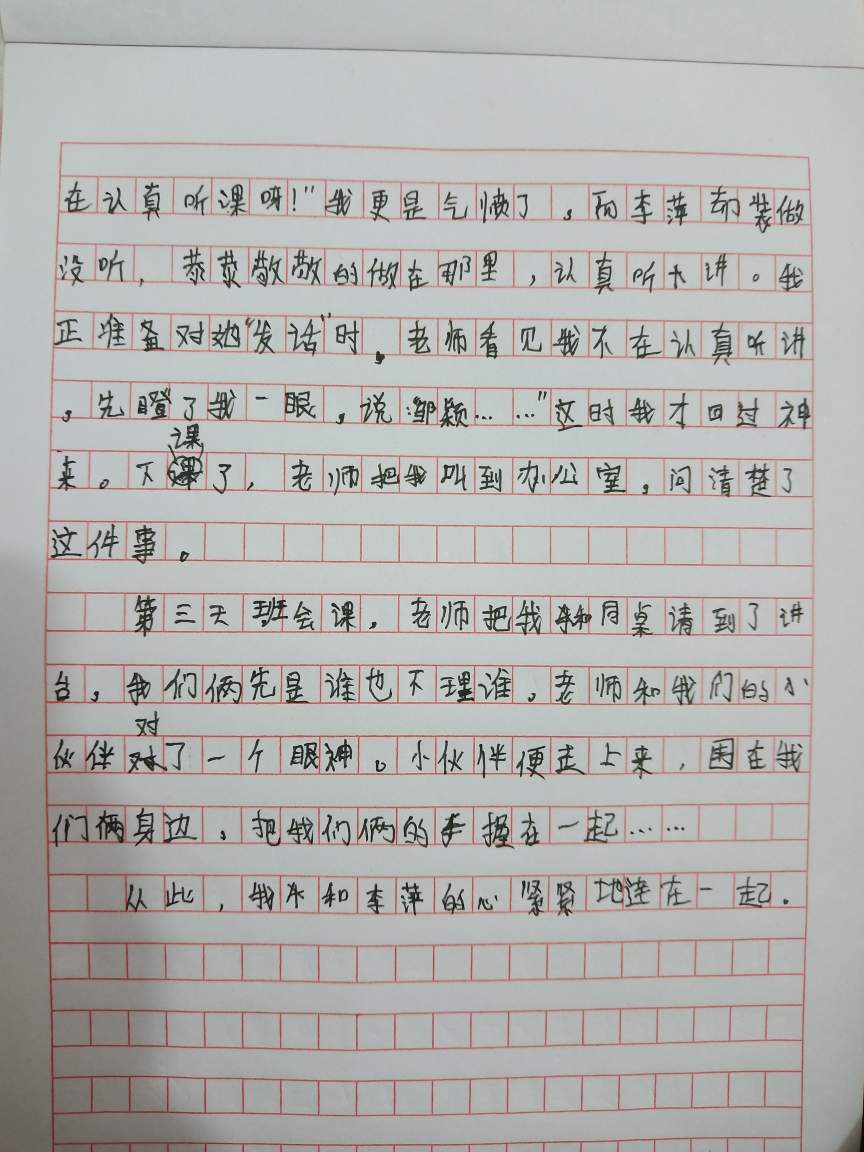 在认真听课呀！"我更是气愤了，而李萍却装做
没听，恭恭敬敬的做在那里，认真听讲。我
正准备对她"发话"时，老师看见我不在认真听讲
，先瞪了我一眼，说："邹颖……"这时我才回过神
来。下课了，老师把我叫到办公室，问清楚了
这件事。
第三天班会课，老师把我和同桌请到了讲
台，我们俩先是谁也不理谁，老师和我们的小
伙伴对了一个眼神。小伙伴便走上来，围在我
们俩身边，把我们俩的手握在一起……
从此，我和李萍的心紧紧地连在一起．